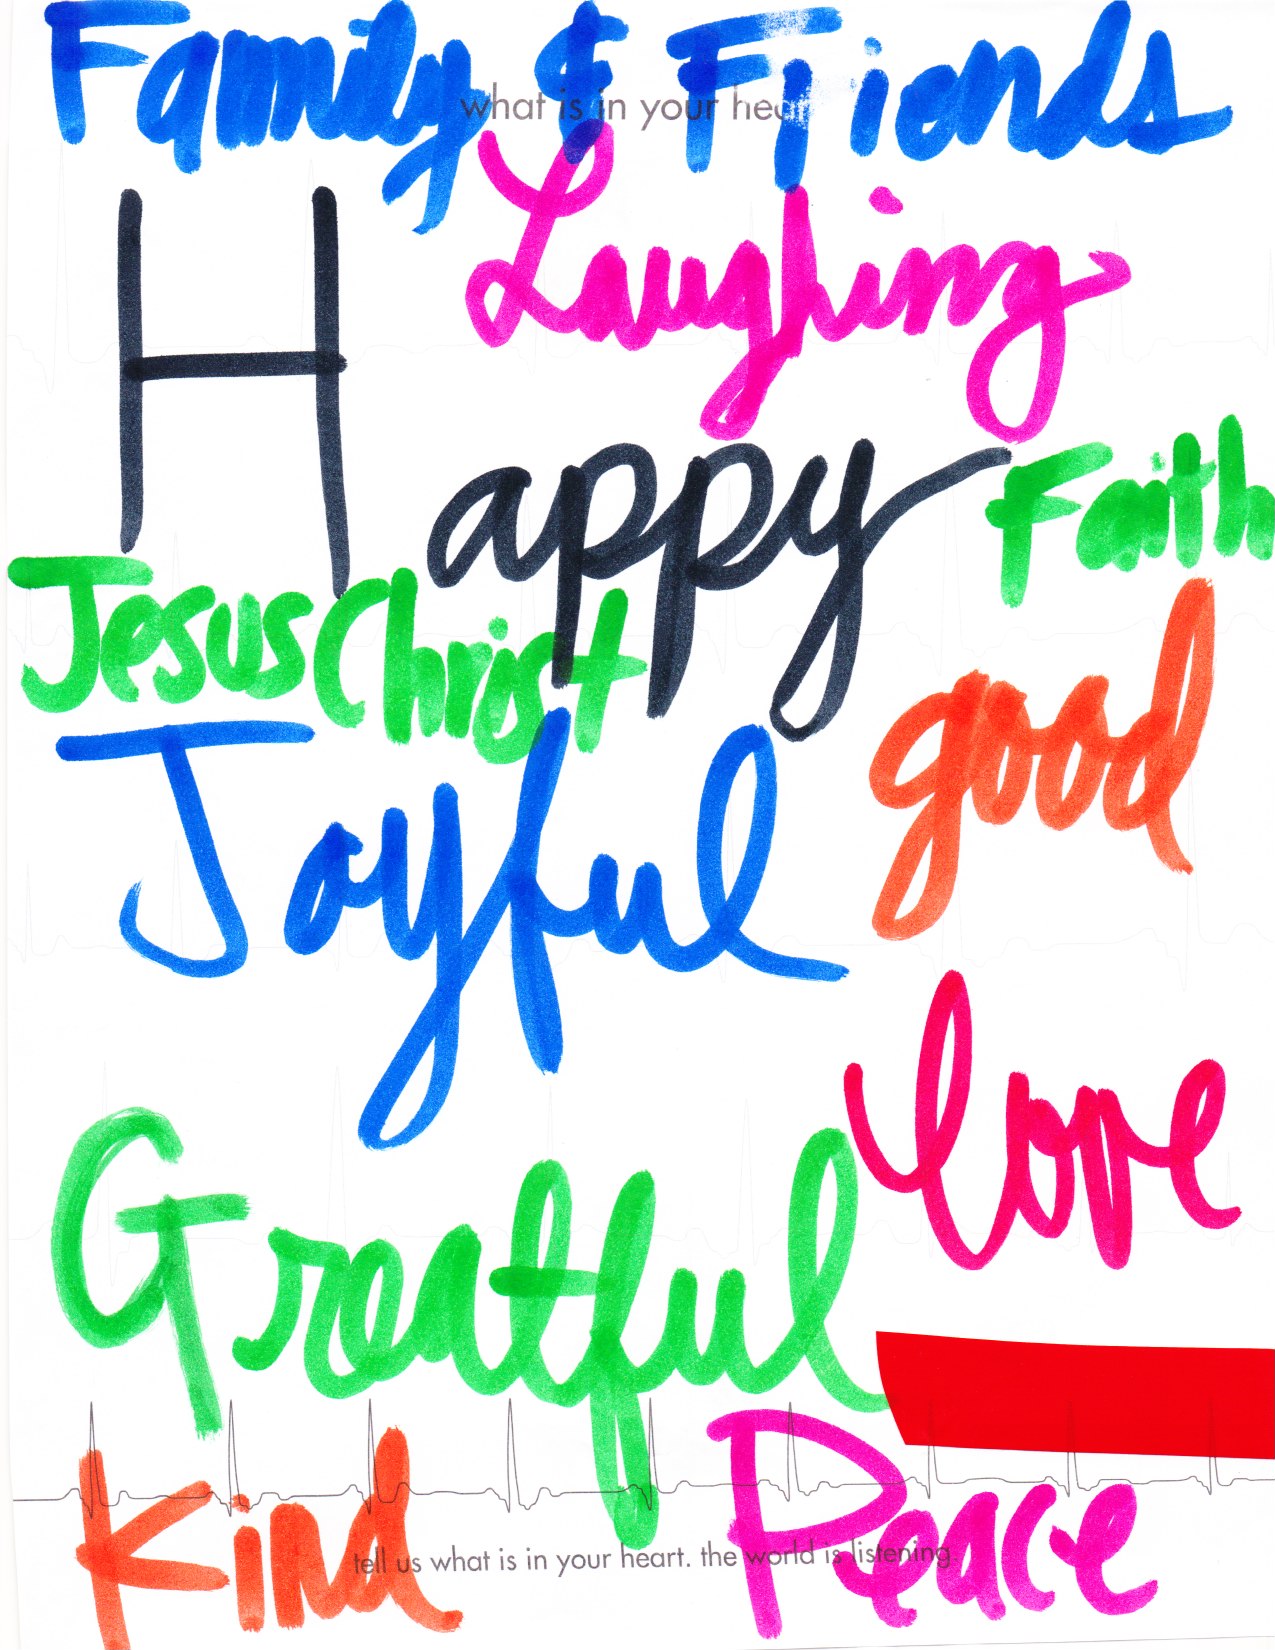 Family & Friends
what is in your hear
Laughing
Happy
Faith
Jesus Christ
good
Joyful
love
Greatful
Peace
Kind
tell us what is in your heart. the world is listening.